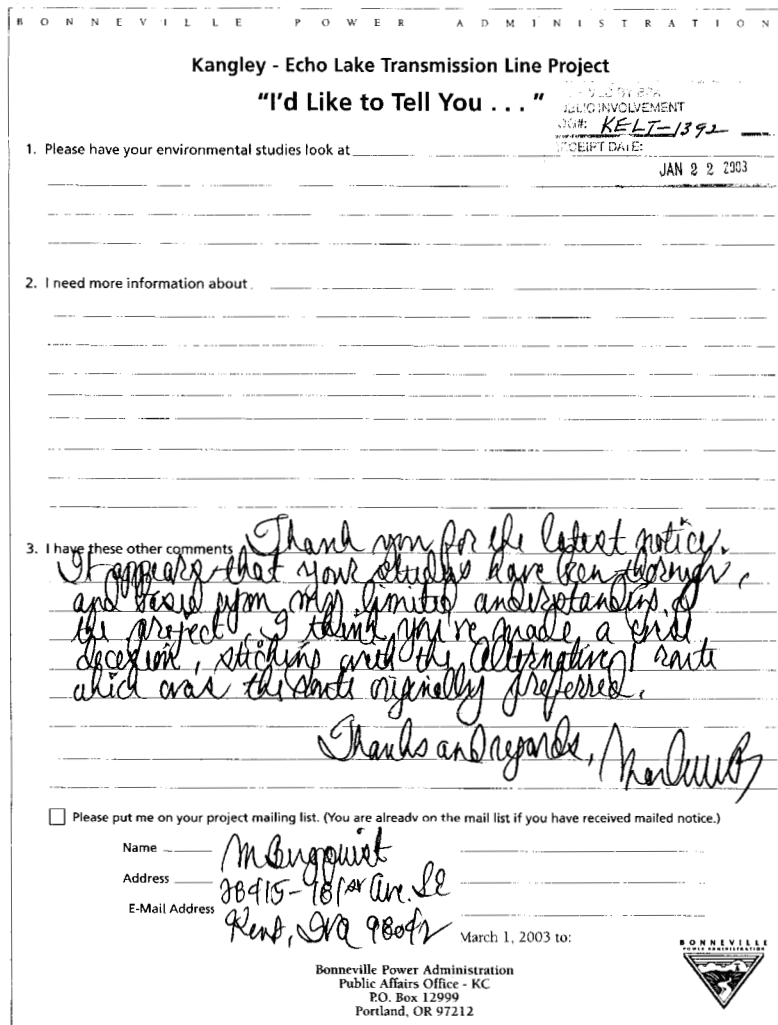 BONNEVILLE POWER ADMINISTRATION
Kangley - Echo Lake Transmission Line Project
"I'd Like to Tell You . . . "
INVOLVEMENT
KELT-1392
RECEIPT DATE:
JAN 2 2 2003
1. Please have your environmental studies look at
2. I need more information about
3. I have these other comments Thank you for the latest notice.
It appears that your studies have been thorough,
and based upon my limited understanding of
the project, I think you've made a wise
decesion, sticking with the Alternative 1 route
which was the route originally preferred.
Thanks and regards,
Please put me on your project mailing list. (You are already on the mail list if you have received mailed notice.)
Name M Bergquist
Address 28415-181st Ave. SE
E-Mail Address Kent, WA 98042
March 1, 2003 to:
BONNEVILLE
POWER ADMINISTRATION
Bonneville Power Administration
Public Affairs Office - KC
P.O. Box 12999
Portland, OR 97212